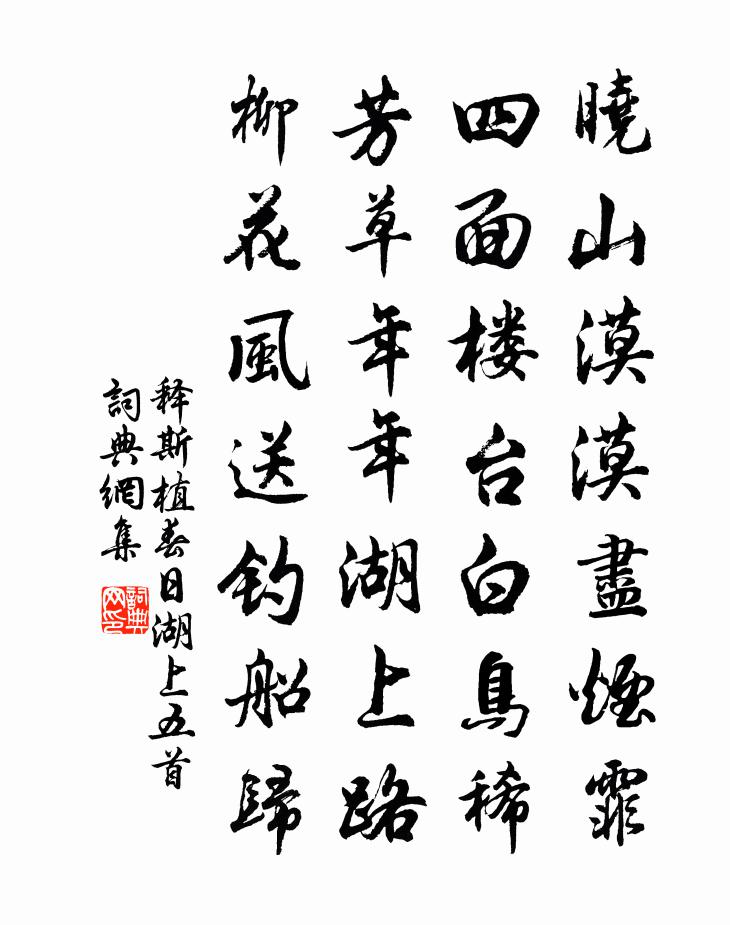 曉山漠漠盡煙霏
四面楼台白鳥稀
芳草年年湖上路
柳花風送钓船歸
释斯植春日湖上五首
詞典網集
詞典网印